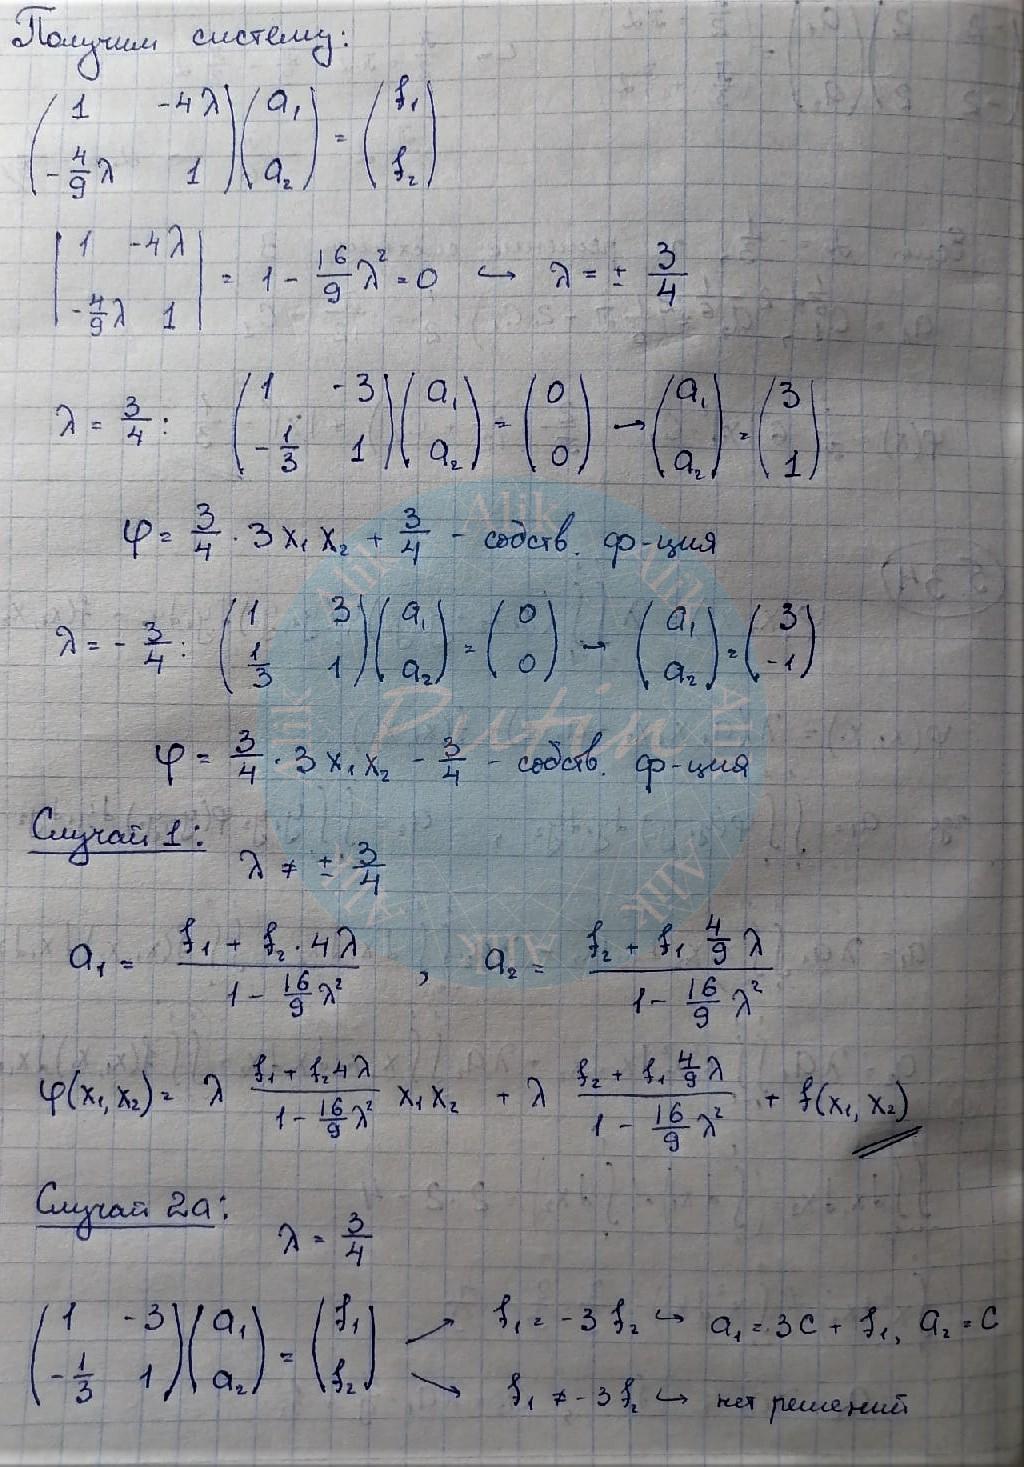 Получим систему:
(1 -4λ; -4/9 λ 1)(a₁; a₂) = (f₁; f₂)
|1 -4λ; -4/9 λ 1| = 1 - 16/9 λ² = 0 ↪ λ = ± 3/4
λ = 3/4: (1 -3; -1/3 1)(a₁; a₂) = (0; 0) → (a₁; a₂) = (3; 1)
φ = 3/4 · 3 x₁ x₂ + 3/4 - собств. ф-ция
λ = - 3/4: (1 3; 1/3 1)(a₁; a₂) = (0; 0) → (a₁; a₂) = (3; -1)
φ = 3/4 · 3 x₁ x₂ - 3/4 - собств. ф-ция
Случай 1:
λ ≠ ± 3/4
a₁ = (f₁ + f₂ · 4λ)/(1 - 16/9 λ²) , a₂ = (f₂ + f₁ 4/9 λ)/(1 - 16/9 λ²)
φ(x₁, x₂) = λ (f₁ + f₂ 4λ)/(1 - 16/9 λ²) x₁ x₂ + λ (f₂ + f₁ 4/9 λ)/(1 - 16/9 λ²) + f(x₁, x₂)
Случай 2а:
λ = 3/4
(1 -3; -1/3 1)(a₁; a₂) = (f₁; f₂)
f₁ = -3 f₂ ↪ a₁ = 3C + f₁, a₂ = C
f₁ ≠ -3 f₂ ↪ нет решений
Alik
Alik
Alik
Alik
Putin
Alik
Alik
Alik
Alik
Alik